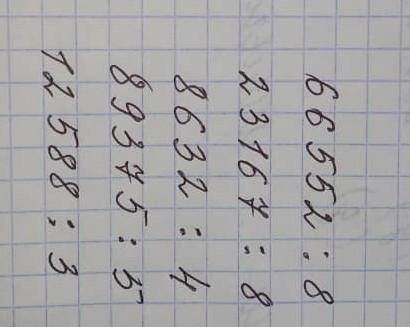 66552 : 8
23167 : 8
8632 : 4
89375 : 5
12588 : 3